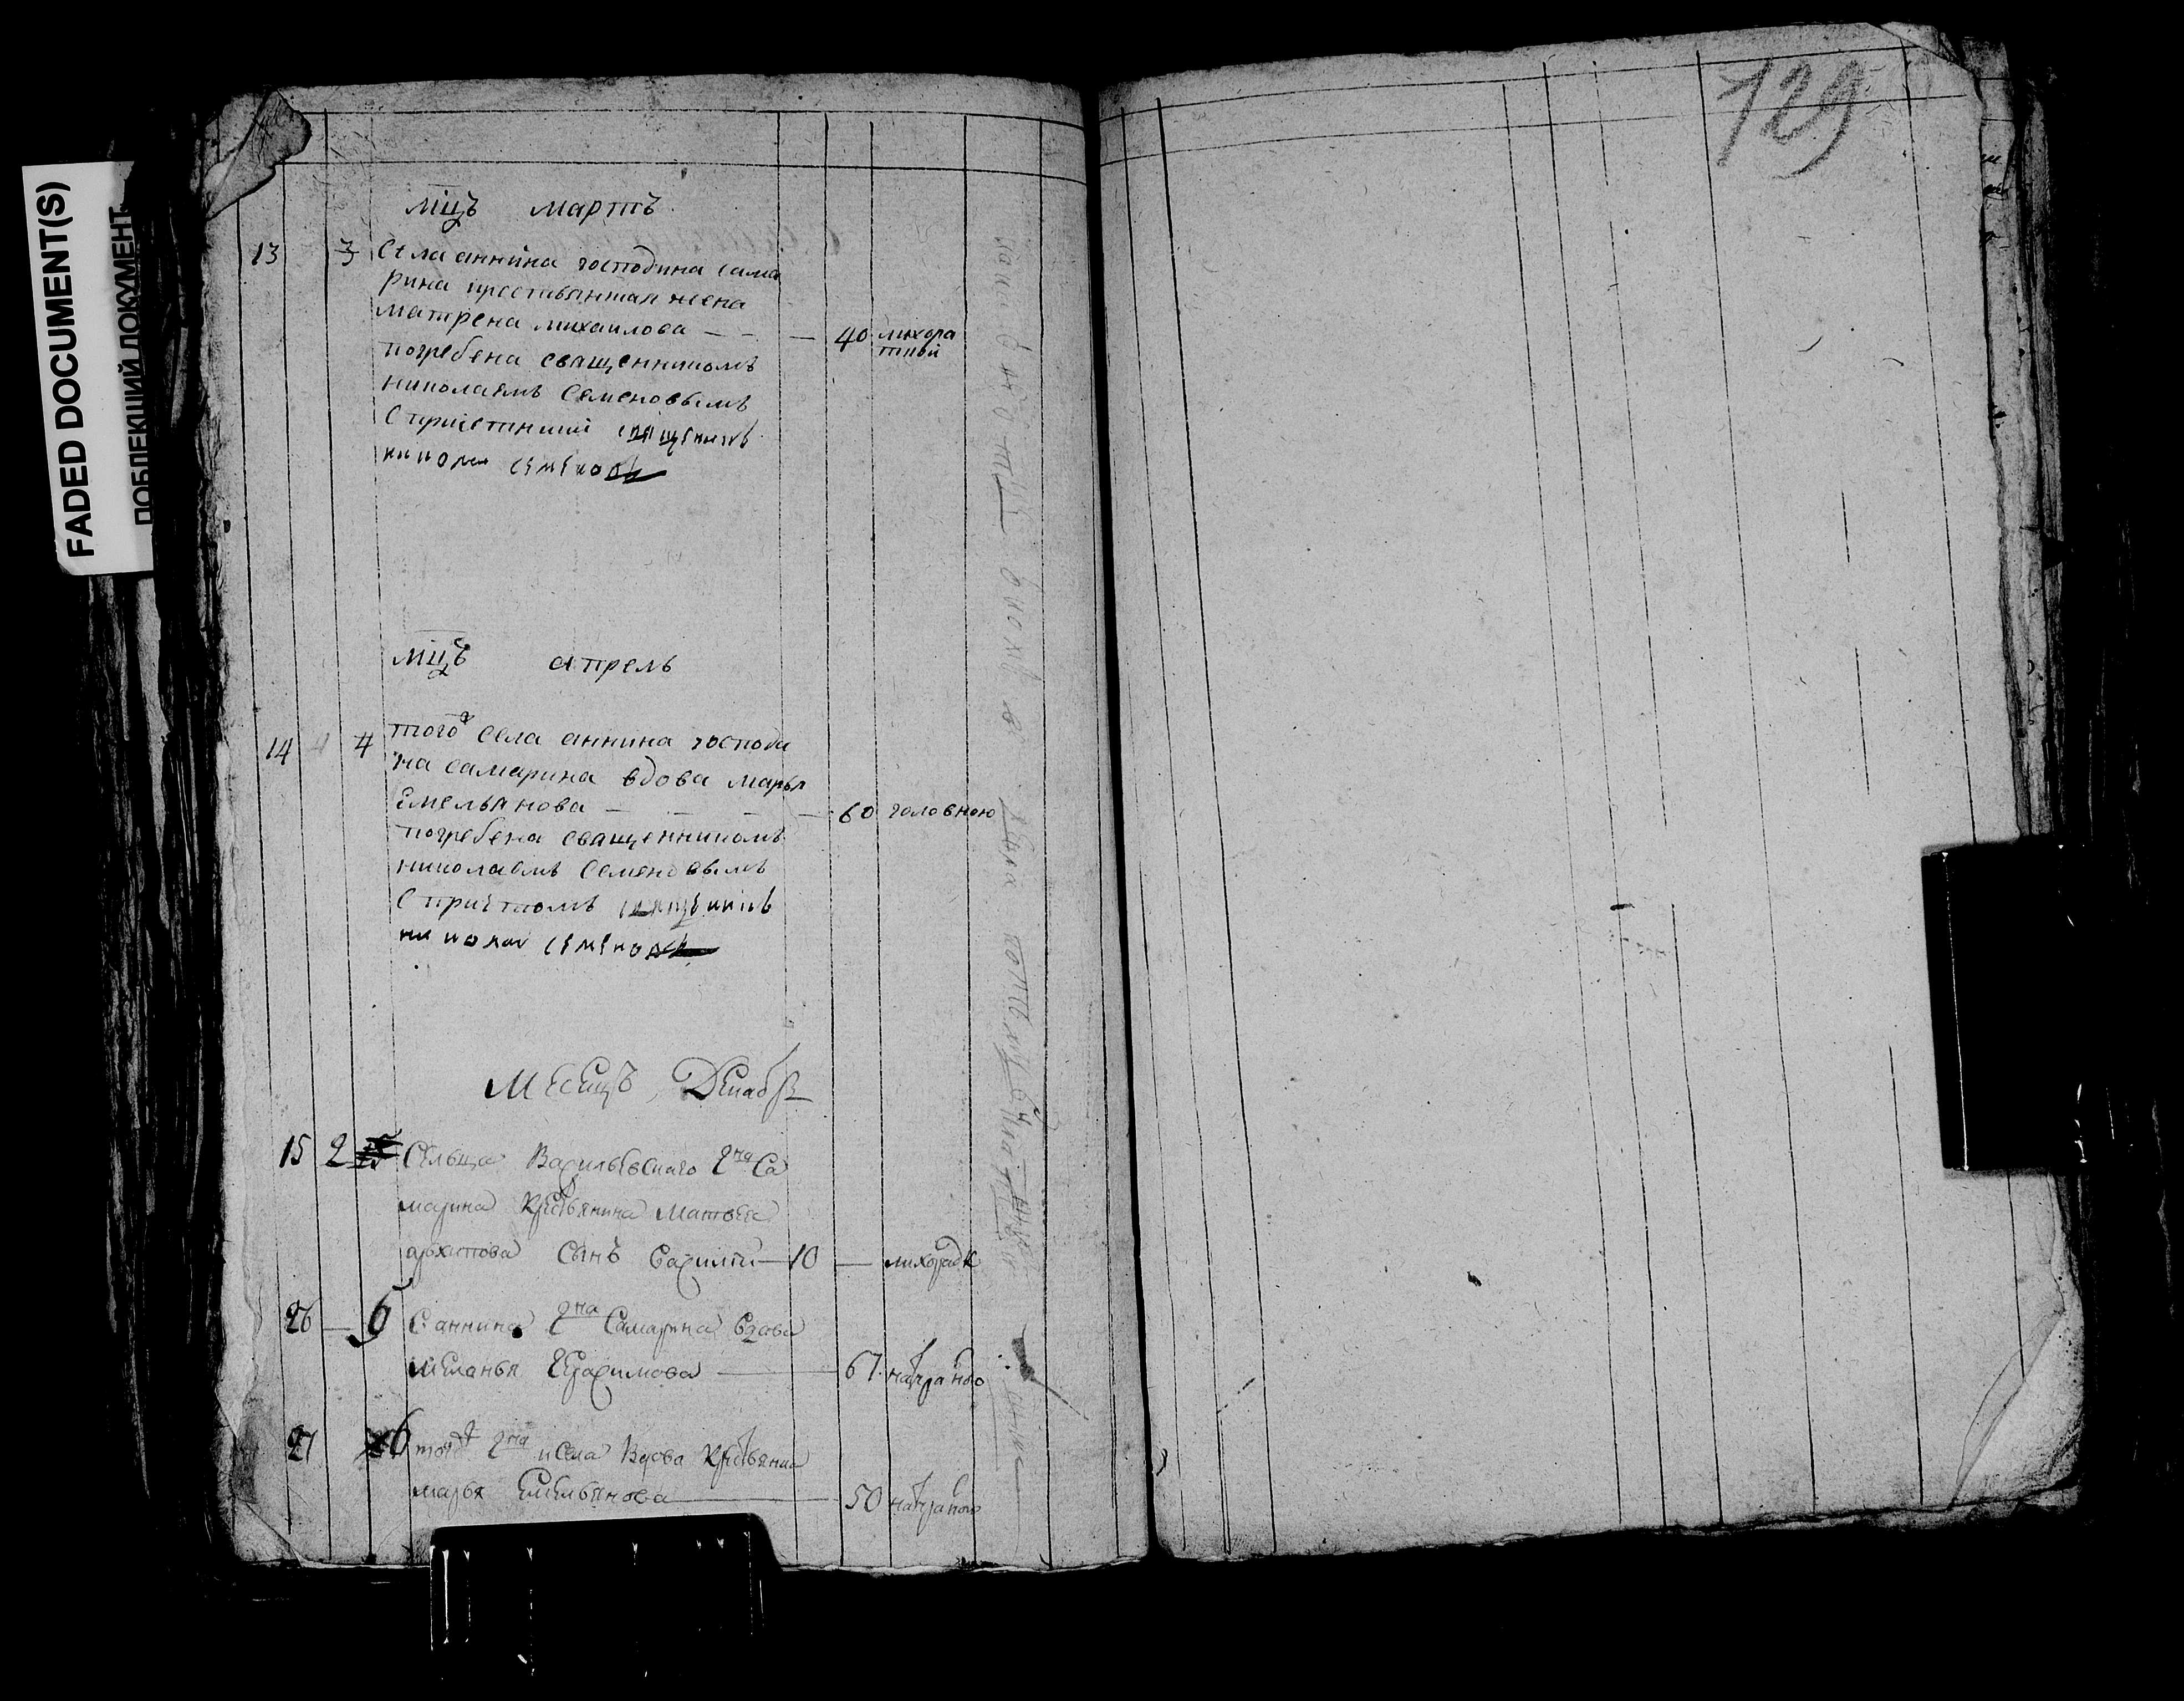 FADED DOCUMENT(S)
ПОБЛЕКШИЙ ДОКУМЕНТ
129
мцъ мартъ
13 3 Села аннина господина сама
рина крестьянская жена
матрена михаилова — — — 40 лихора
тной
погребена священникомъ
николаемъ Семеновымъ
священникъ
николаи семеновъ
мцъ апрель
14 4 того села аннина господи
на самарина вдова марья
Емельянова — — — 60 головною
погребена священникомъ
николаемъ Семеновымъ
С причтомъ священникъ
николаи семеновъ
Месецъ Декабр
15 2 Сельца Васильевскаго Гна Са
марина Крестьянина Матвея
архипова Сынъ Василии — 10 — лихорадк
26 — 6 С: аннина Гна Самарина Вдова
меланья Герасимова — 67
27 6 тогож Гна и Села Вдова Крестьянка
марья Емельянова — 50